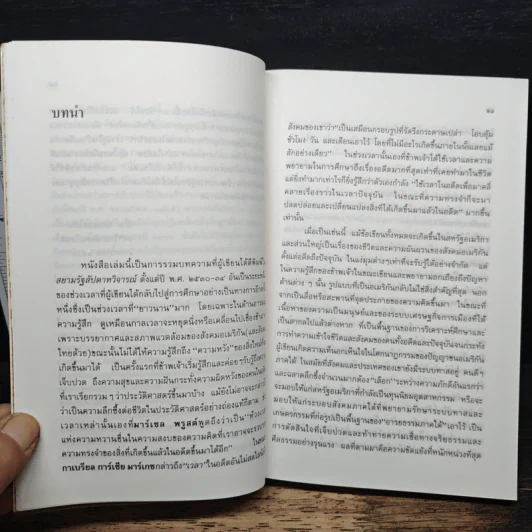 บทนำ
หนังสือเล่มนี้เป็นการรวมบทความที่ผู้เขียนได้ตีพิมพ์
สยามรัฐสัปดาหวิจารณ์ ตั้งแต่ปี พ.ศ. อันเป็นระยะ
ของช่วงเวลาที่ผู้เขียนได้กลับไปสู่การศึกษาอย่างเป็นทางการอีก
หนึ่งซึ่งเป็นช่วงเวลาที่ "ยาวนาน" มาก โดยเฉพาะในด้านความ
ความรู้สึก ดูเหมือนกาลเวลาจะหยุดนิ่งหรือเคลื่อนไปเชื่องช้า
เพราะบรรยากาศและสภาพแวดล้อมของสังคมอเมริกัน (และ
ไทยด้วย) ขณะนั้นไม่ได้ให้ความรู้สึกถึง "ความหวัง" ของสิ่งใหม่
เกิดขึ้นมาได้ เป็นครั้งแรกที่ข้าพเจ้าเริ่มรู้สึกและค่อยๆรับรู้ถึง
เจ็บปวด ถึงความสุขและความฝันกระทั่งความผิดหวังของคนใน
ที่เราเรียกรวม ๆ ว่าประวัติศาสตร์ขึ้นมาบ้าง แม้ยังไม่อาจจะกล่าว
ว่าเป็นความลึกซึ้งต่อชีวิตในประวัติศาสตร์อย่างถ่องแท้ก็ตาม
เวลาเหล่านั้นเองที่มาร์เซล พรูสต์พูดถึงว่าเป็น "ห้วง
แห่งความหวานชื่นในความสงบของความคิดที่เราอาจจะจากการ
ความทรงจำของสิ่งที่เกิดขึ้นแล้วในอดีตขึ้นมาได้อีก"
กาเบรียล การ์เซีย มาร์เกซกล่าวถึง "เวลา" ในอดีตอัน
สังคมของเขาว่า "เป็นเสมือนกรอบรูปที่รัดรึงกระดาษเปล่า โอบอุ้ม
ชั่วโมง วัน และเดือนเอาไว้ โดยที่ไม่มีอะไรเกิดขึ้นภายในนั้นเลยแม้
สักอย่างเดียว" ในช่วงเวลานั้นเองที่ข้าพเจ้าได้ใช้เวลาและความ
พยายามในการศึกษาถึงเรื่องอดีตมากที่สุดเท่าที่เคยทำมาในชีวิต
แต่ยิ่งทำมากเท่าไรก็ยิ่งรู้สึกว่าตัวเองกำลัง "ใช้เวลาในอดีตเพื่อมาคลี่
คลายเรื่องราวในเวลาปัจจุบัน ในขณะที่ความทรงจำก็จะมา
ปลดปล่อยและเปลี่ยนแปลงสิ่งที่ได้เกิดขึ้นมาแล้วในอดีต" มากขึ้น
เท่านั้น
เมื่อเป็นเช่นนี้ แม้ข้อเขียนทั้งหมดจะเกิดขึ้นในสหรัฐอเมริกา
และส่วนใหญ่เป็นเรื่องของชีวิตและความผันผวนของสังคมอเมริกัน
ตั้งแต่อดีตถึงปัจจุบัน ในแง่มุมต่างๆเท่าที่จะรับรู้ได้อย่างจำกัด แต่
ในความรู้สึกของข้าพเจ้าในขณะเขียนและพยายามถกเถียงถึงปัญหา
ด้านต่าง ๆ นั้น รูปแบบที่เป็นอเมริกันกลับไม่ใช่สิ่งสำคัญที่สุด นอก
จากเป็นสื่อหรือสะพานที่จุดประกายของความคิดขึ้นมา ในขณะที่
เนื้อหาของความเป็นมนุษย์และของระบบเศรษฐกิจการเมืองที่ได้
เป็นสากลไปแล้วต่างหาก ที่เป็นพื้นฐานของการวิเคราะห์ศึกษาและ
การทำความเข้าใจชีวิตและสังคมของคนทั้งอดีตและปัจจุบันจนกระทั่ง
ผู้เขียนเกิดความเห็นอกเห็นใจในโศกนาฏกรรมของปัญญาชนอเมริกัน
ภาคใต้ ในสมัยที่สังคมและประเทศของเขายังมีระบบทาสอยู่ คนดีๆ
และฉลาดลึกซึ้งจำนวนมากต้อง "เลือก" ระหว่างความภักดีอันแรกว่า
จะมอบให้แก่สหรัฐอเมริกาที่กำลังเป็นทุนนิยมอุตสาหกรรม หรือจะ
มอบให้แก่ระบอบสังคมภาคใต้ที่พยายามรักษาระบบทาสและ
เกษตรกรรมที่ก่อรูปเป็นพื้นฐานของ "อารยธรรมภาคใต้" เอาไว้ เป็น
การตัดสินใจที่เจ็บปวดและท้าทายความเชื่อทางจริยธรรมและ
ศีลธรรมอย่างรุนแรง ผลที่ตามมาคือความขัดแย้งที่หนักหน่วงที่สุด